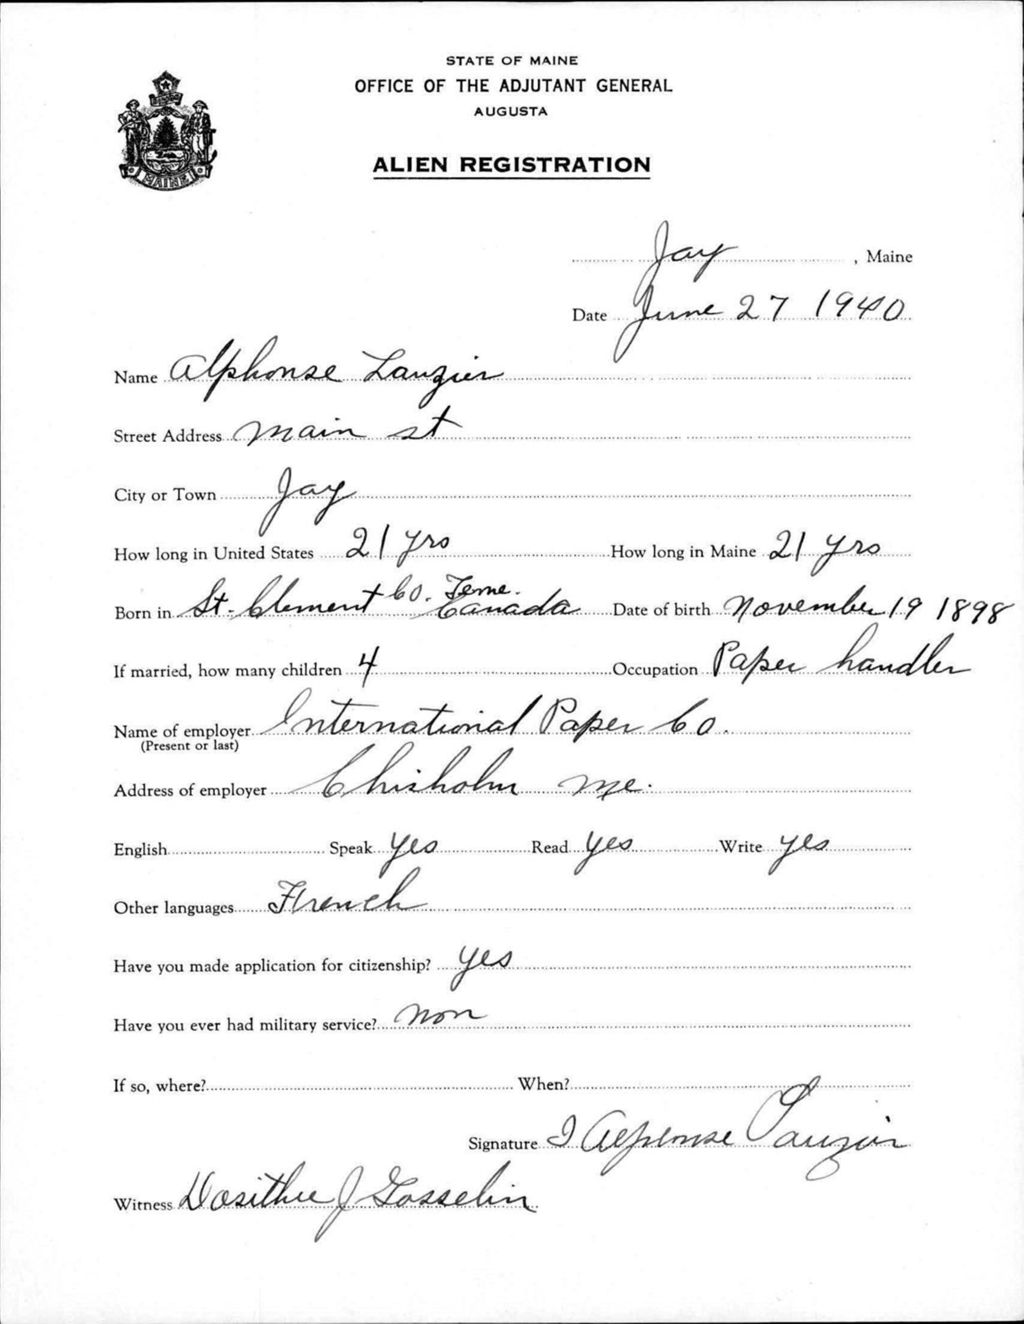 STATE OF MAINE
OFFICE OF THE ADJUTANT GENERAL
AUGUSTA
ALIEN REGISTRATION
MAINE
Jay, Maine
Date June 27 1940
Name Alphonse Lauzier
Street Address Main st
City or Town Jay
How long in United States 21 yrs How long in Maine 21 yrs
Born in St. Clement Co. Teme. Canada Date of birth November 19 1898
If married, how many children 4 Occupation Paper handler
Name of employer International Paper Co.
(Present or last)
Address of employer Chisholm Me.
English Speak yes Read yes Write yes
Other languages French
Have you made application for citizenship? yes
Have you ever had military service? Non
If so, where? When?
Signature J Alphonse Lauzier
Witness Dosithee J Gosselin